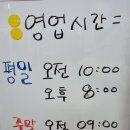 영업시간=
평일 오전 10:00
오후 8:00
주말 오전 09:00